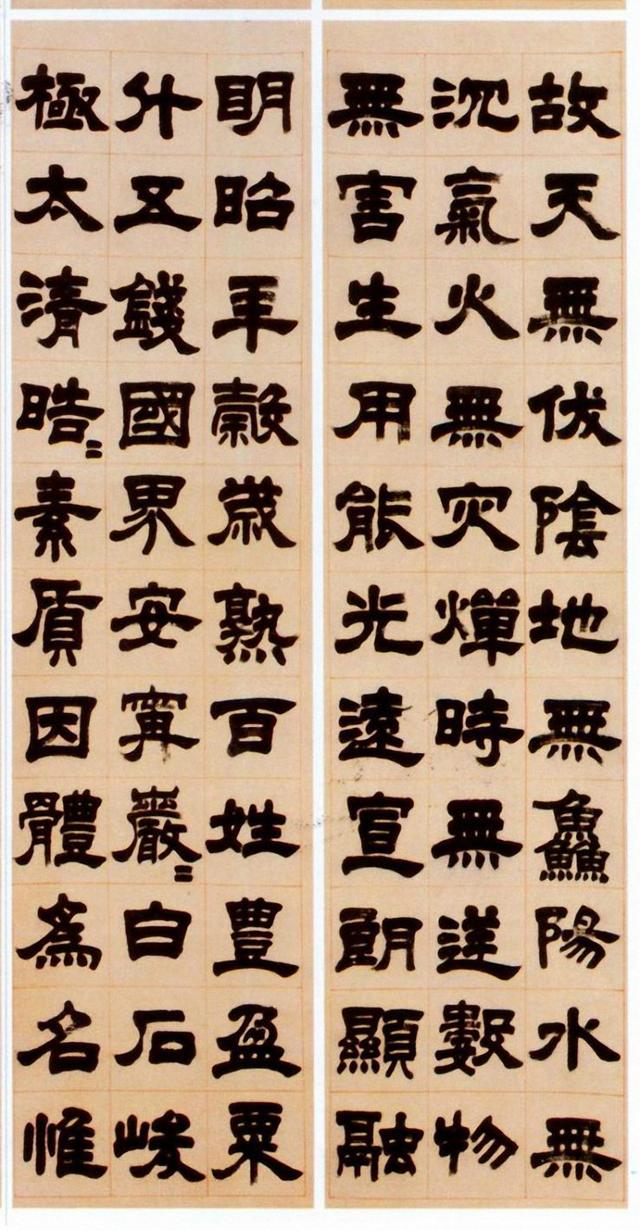 故天無伏陰地無鱻陽水無
沉氣火無灾燀時無逆數物
無害生用能光遠宣朗顯融
明昭年穀歲熟百姓豊盈粟
升五錢國界安寧巖〻白石峻
極太清晧〻素質因體爲名惟